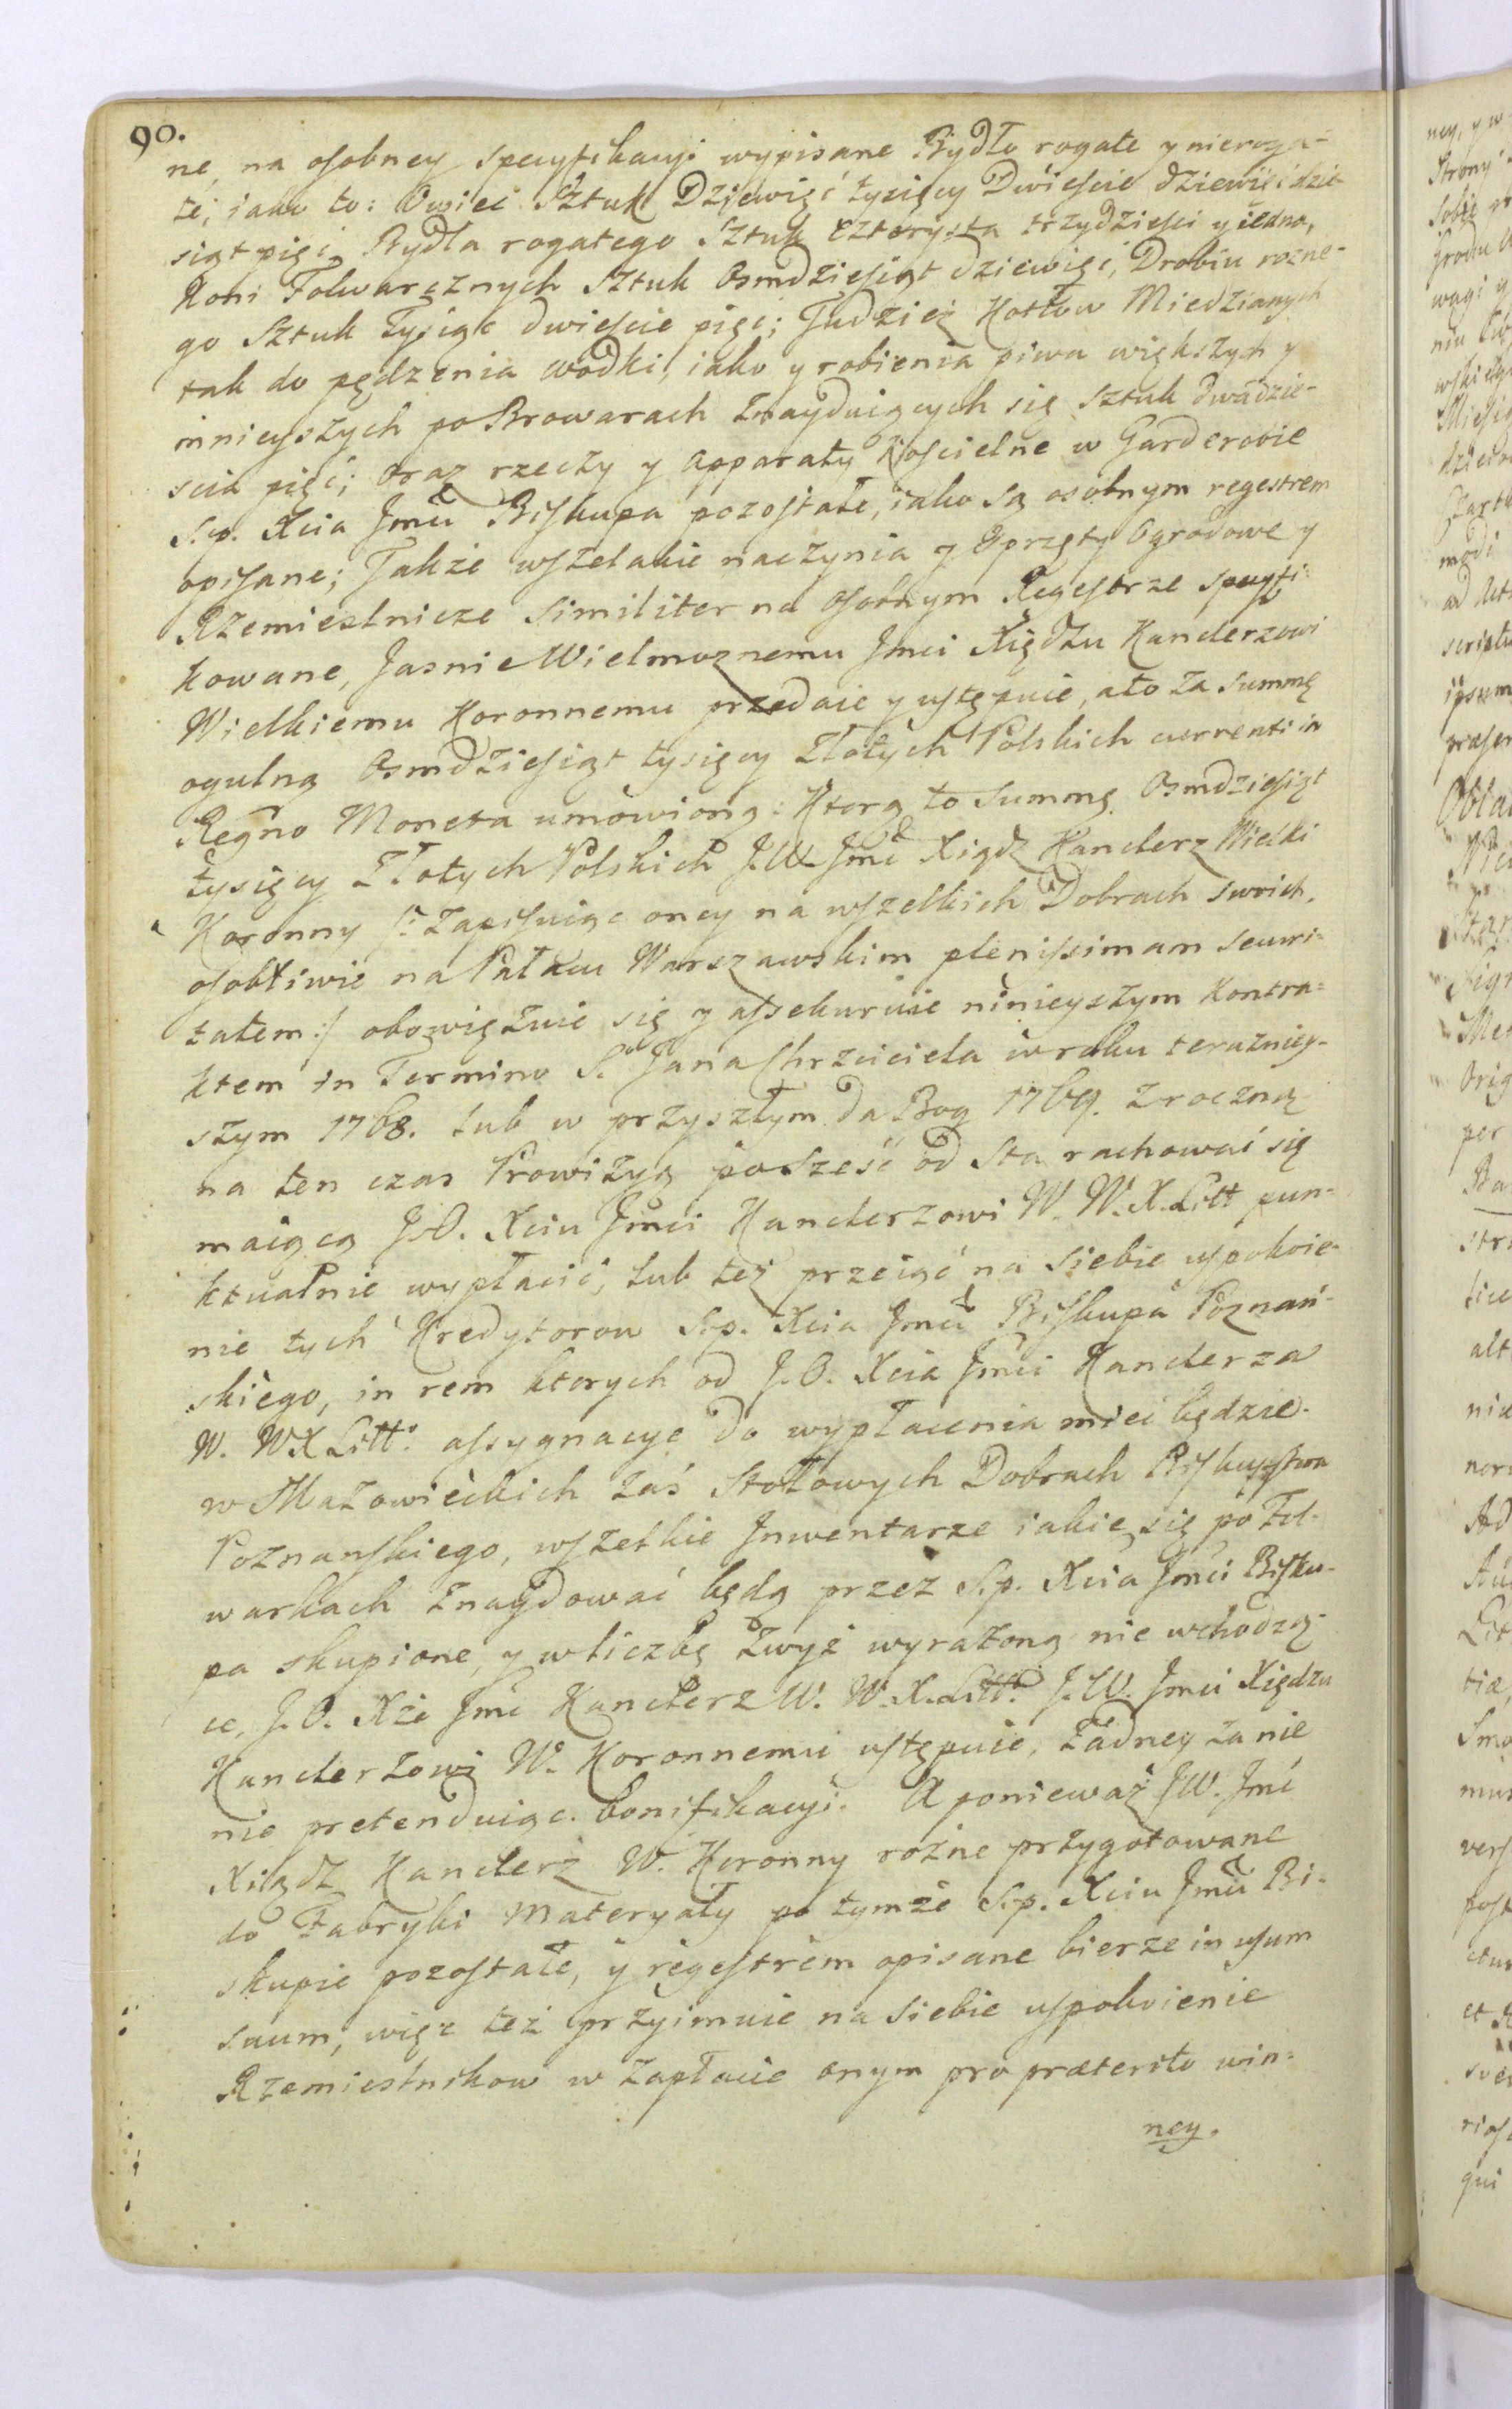 90.
ne, na osobney specyfikacyi wypisane Bydło rogate y nieroga-
te; iako to: Owiec Sztuk Dziewięć tysięcy Dwieście dziewięćdzie-
siąt pięć, Bydła rogatego Sztuk Czterysta trzydzieści y iedno,
Koni Folwarcznych Sztuk Osmdziesiąt dziewięć, Drobiu rozne-
go Sztuk Tysiąc dwieście pięć; Tudzież Kotłow Miedzianych
tak do pędzenia wodki, iako y robienia piwa większych y
mnieyszych po Browarach znayduiących się sztuk dwadzie-
scia pięć; oraz rzeczy y apparaty Kościelne w Garderobie
S.p. Xcia Jmći Biskupa pozostałe, iako są osobnym regestrem
opisane; Także wszelakie naczynia y Sprzęty Ogrodowe y
Rzemieslnicze similiter na osobnym Regestrze specyfi-
kowane, Jasnie Wielmoznemu Jmci Xiędzu Kanclerzowi
Wielkiemu Koronnemu przedaie y ustępuie, a to za summę
ogulną Osmdziesiąt tysięcy Złotych Polskich currenti in
Regno Moneta umowioną: Ktorą to Summę Osmdziesiąt
tysięcy Złotych Polskich J.W. Jmć Xiądz Kanclerz Wielki
Koronny /: Zapisuiąc oney na wszelkich Dobrach swoich,
osobliwie na Pałacu Warszawskim plenissimam securi-
tatem :/ obowięzuie się y assekuruie ninieyszym Kontra-
ktem in Termino S. Jana Chrzciciela w roku terazniey-
szym 1768. lub w przyszłym da Bog 1769. z roczną
na ten czas Prowizyą po sześć od sta rachować się
maiącą J.O. Xciu Jmci Kanclerzowi W. W. X. Litt pun-
ktualnie wypłacić, lub też przeiąć na siebie uspokoie-
nie tych Kredytorow S.p. Xcia Jmći Biskupa Poznań-
skiego, in rem ktorych od J.O. Xcia Jmci Kanclerza
W. W X Litt: assygnacye do wypłacenia mieć będzie.
w Mazowieckich zaś Stołowych Dobrach Biskupstwa
Poznanskiego, wszelkie Inwentarze iakie się po Fol-
warkach znaydować będą przez S.p. Xcia Jmci Bisku-
pa skupione, y w liczbę zwyż wyrażoną nie wchodzą-
ce, J.O. Xże Jmć Kanclerz W. W. X. Litt: J.W. Jmci Xiędzu
Kanclerzowi W. Koronnemu ustępuie, żadney za nie
nie pretenduiąc bonifikacyi. A ponieważ J W. Jmć
Xiądz Kanclerz W. Koronny rożne przygotowane
do Fabryki Materyały po tymże S.p. Xciu Jmći Bi-
skupie pozostałe, y regestrem opisane bierze in usum
suum, więc też przyimuie na siebie uspokoienie
Rzemieslnikow w Zapłacie onym pro præterito win-
ney.